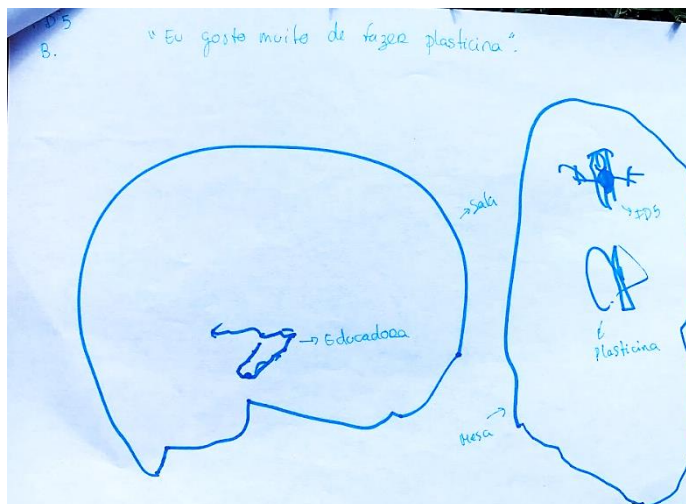 D5
B.
"Eu gosto muito de fazer plasticina".
→ Sala
→ ID5
→ Educadora
é
plasticina
Mesa →